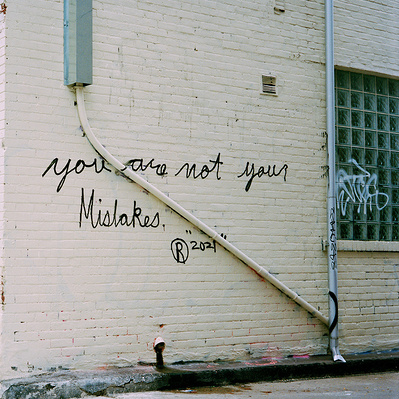 you are not your
Mistakes.
® "2021"